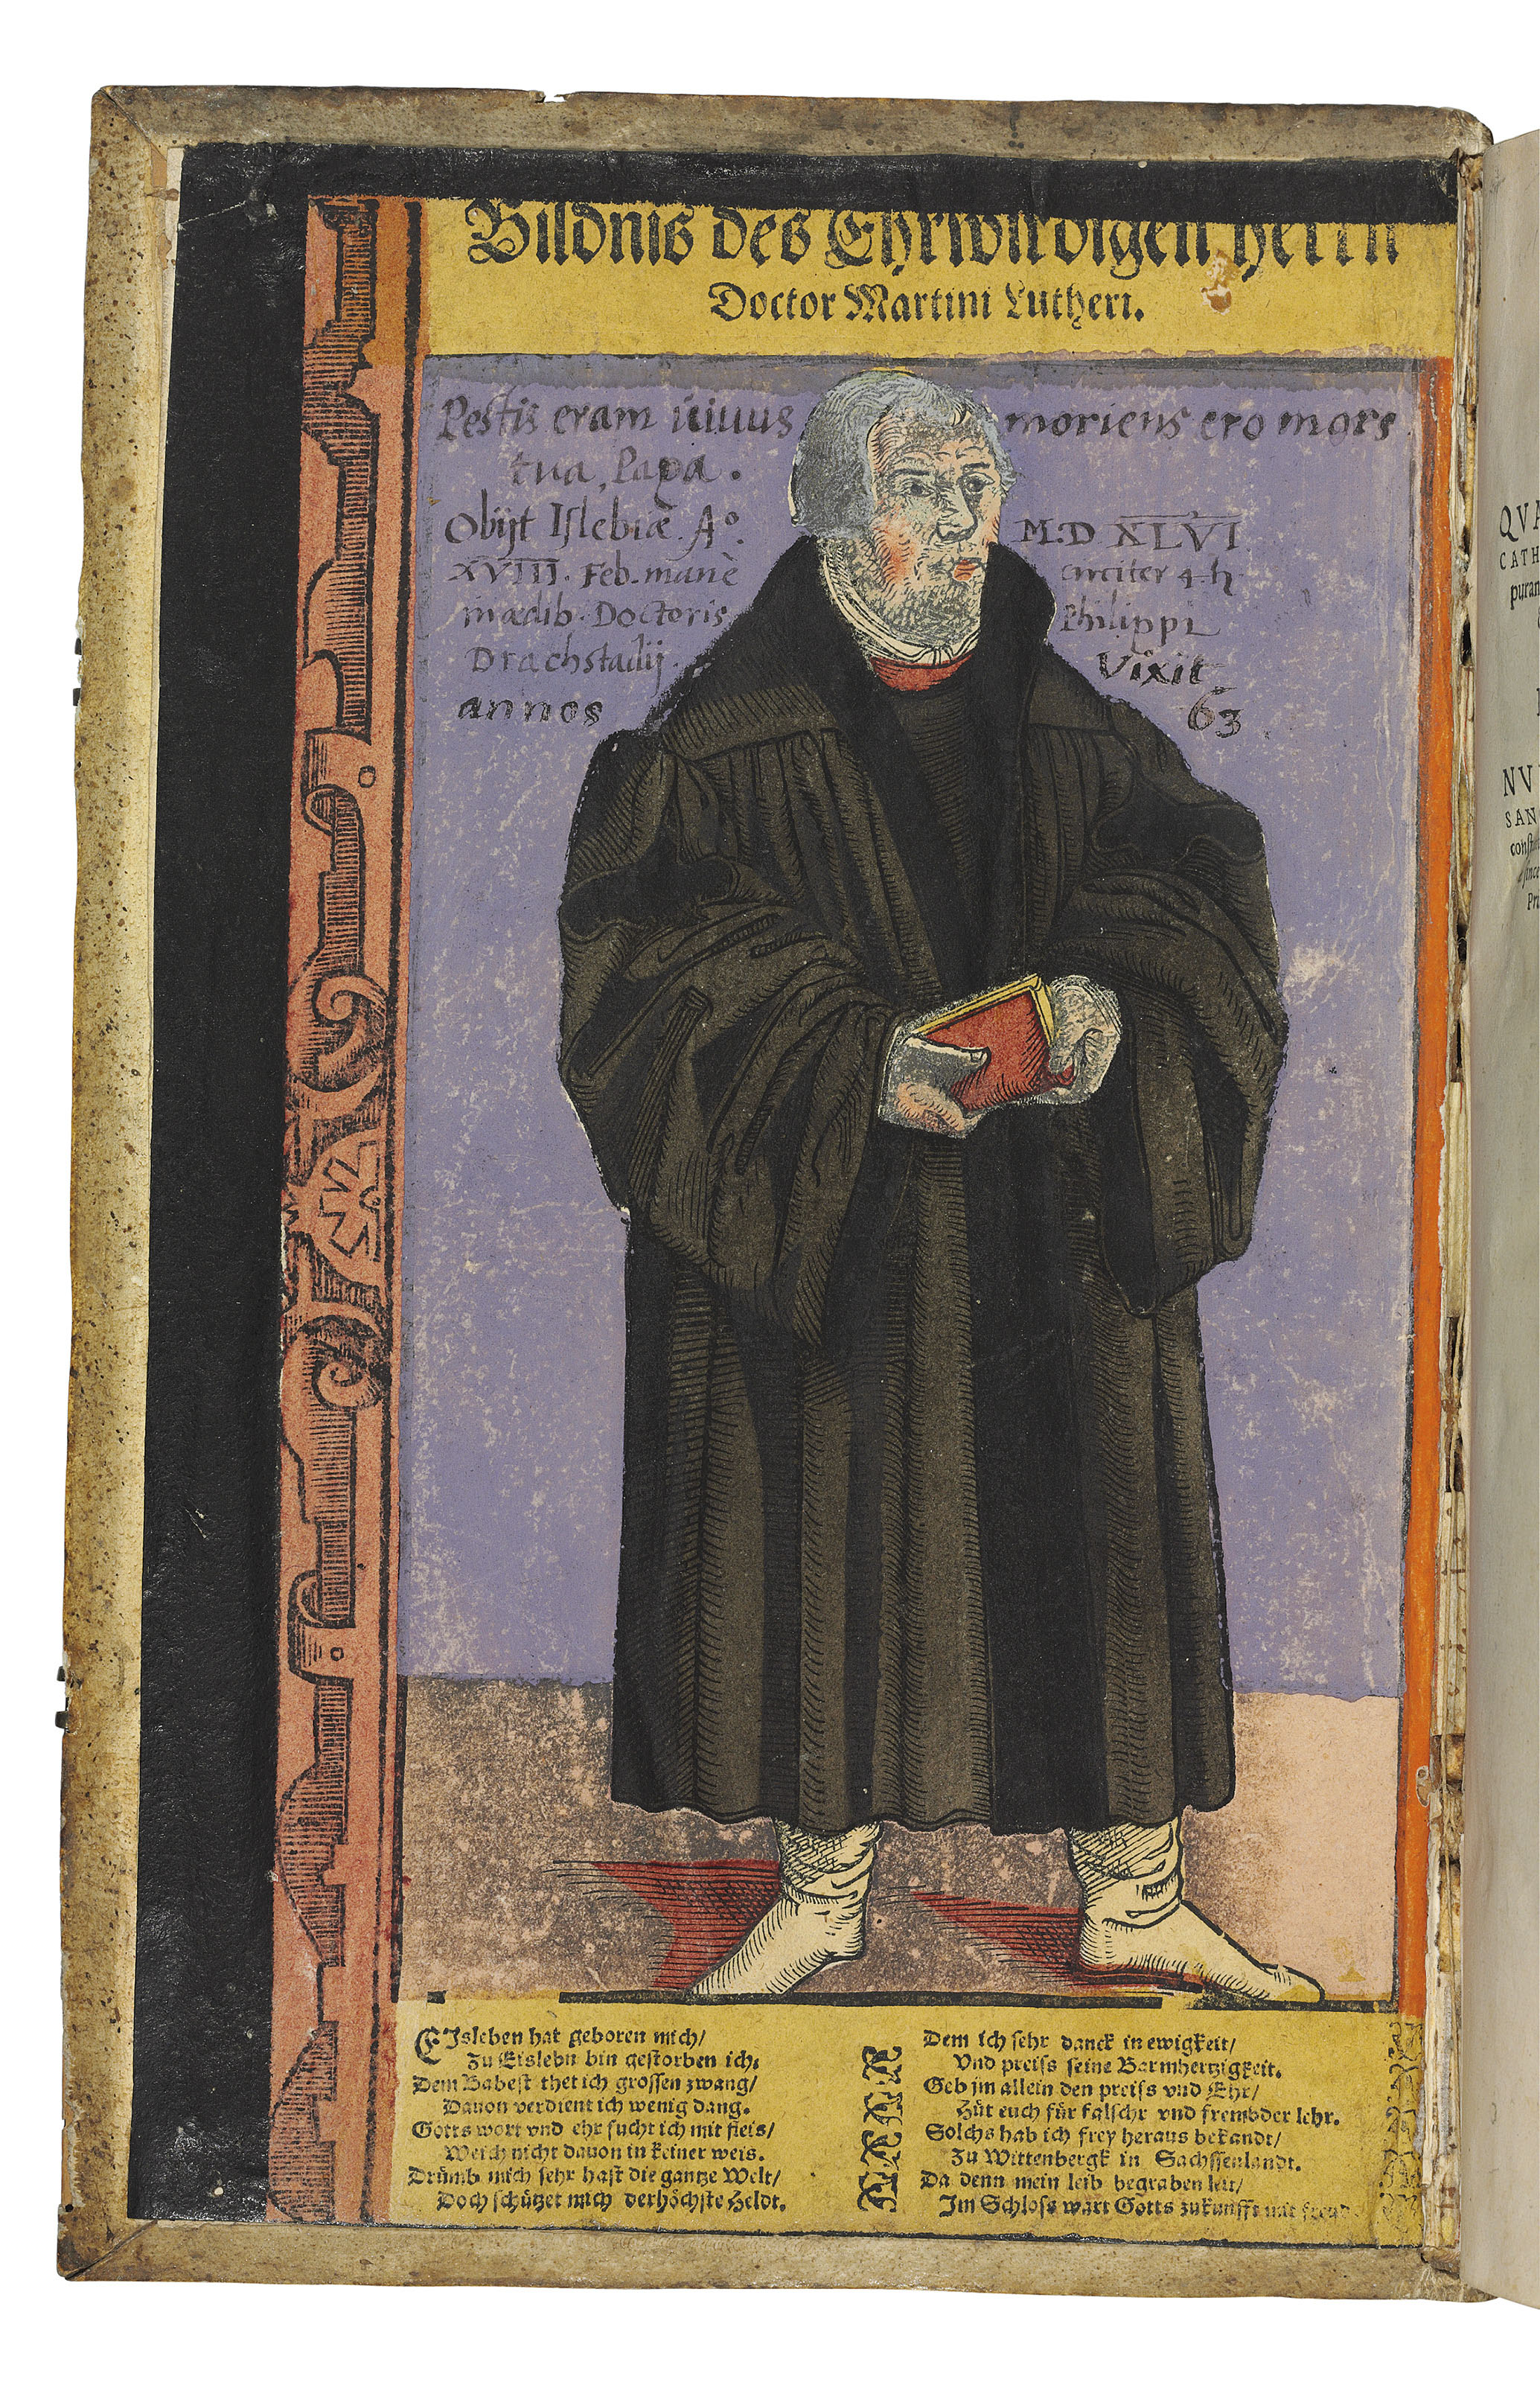 Bildnis des Ehrwirdigen Herrn
Doctor Martini Lutheri.
Pestis eram uiuus moriens ero mors
tua, Papa.
Obijt Islebiæ. Aº. M.D XLVI
XVIII. Feb. manè circiter 4. h
in ædib. Doctoris Philippi
Drachstadij. Vixit
annos 63
EJsleben hat geboren mich/
Zu Eislebn bin gestorben ich.
Dem Babest thet ich grossen zwang/
Dauon verdient ich wenig dang.
Gotts wort vnd ehr sucht ich mit fleis/
Weich nicht dauon in keiner weis.
Drümb mich sehr hast die gantze Welt/
Doch schützet mich der höchste Heldt.
Dem ich sehr danck in ewigkeit/
Vnd preiss seine Barmhertzigkeit.
Geb jm allein den preiss vnd Ehr/
Hüt euch für falschr vnd frembder lehr.
Solchs hab ich frey heraus bekandt/
Zu Wittenbergk in Sachssenlandt.
Da denn mein leib begraben leit/
Im Schloss wart Gotts zukunfft mit freud
QVA
CATH
puram
NVN
SANC
Pri